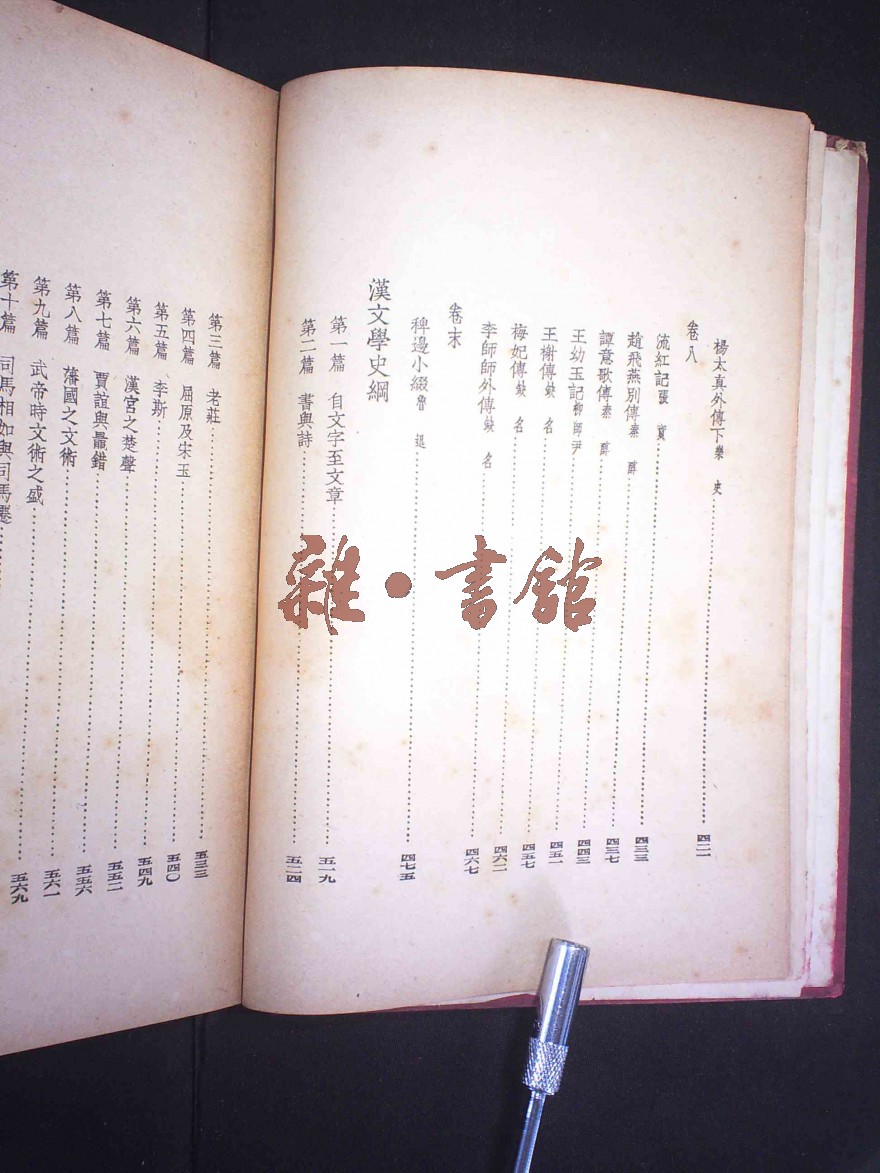 楊太真外傳下樂 史……四二一
卷八
流紅記張 實……四三三
趙飛燕別傳秦 醇……四三七
譚意歌傳秦 醇……四四三
王幼玉記柳師尹……四五一
王榭傳缺 名……四五七
梅妃傳缺 名……四六二
李師師外傳缺 名……四六七
卷末
稗邊小綴魯 迅……四七五
漢文學史綱
第一篇 自文字至文章……五一九
第二篇 書與詩……五二四
第三篇 老莊……五三三
第四篇 屈原及宋玉……五四〇
第五篇 李斯……五四九
第六篇 漢宮之楚聲……五五二
第七篇 賈誼與鼂錯……五五六
第八篇 藩國之文術……五六一
第九篇 武帝時文術之盛……五六九
第十篇 司馬相如與司馬遷
雜·書館